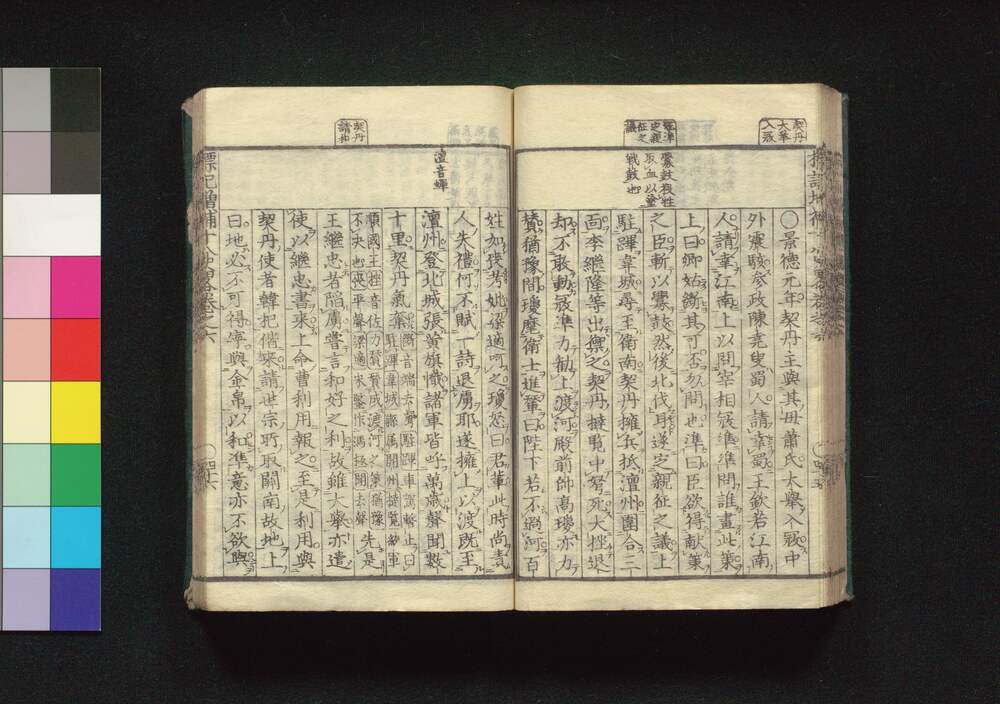 契丹
大擧
入寇
寇準
史親
征之
議
釁鼓殺牲
取血以塗
戰鼓也
〇景德元年契丹主與其母蕭氏大擧入戰中
外震駭參政陳堯叟蜀人請幸蜀王欽若江南
人請幸江南上以問宰相寇準準問誰畫此策
上曰卿姑斷其可否勿問也準曰臣欲得献策
之臣斬以釁鼓然後北伐耳遂定親征之議上
駐蹕韋城尋王衛南契丹擁兵抵澶州圍合三
面李繼隆等出禦之契丹撻覽中弩死大挫退
却不敢動寇準力勸上渡河殿前帥高瓊亦力
賛猶豫間瓊麾衛士進輦曰陛下若不過河百
契丹
請和
澶音蟬
姓如喪考妣梁適呵之瓊怒曰君輩此時尚責
人失禮何不賦一詩退虜耶遂擁上以渡既至
澶州登北城張黄旗幟諸軍皆呼萬歲聲聞數
十里契丹氣奪
先是
王繼忠者陷虜嘗言和好之利故雖大擧亦遣
使以繼忠書來上命曹利用報之至是利用與
契丹使者韓杞偕來請世宗所取關南故地上
曰地必不可得寧與金帛以和準意亦不欲與
標記增補十八史略卷之六
四十六